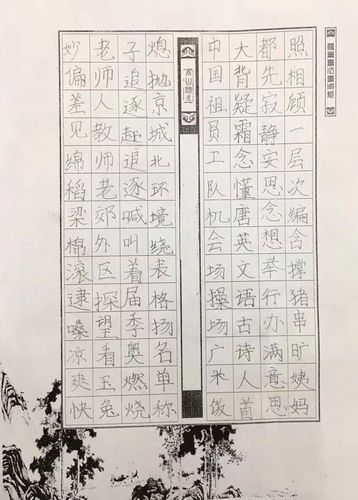 照相顾一层次编含撑猪串旷姨妈
都先寂静安思念想举行办满意思
大背疑霜念懂唐英文语古诗人首
中国祖员工队机会场操场广米饭
熄抛京城北环境绕表格扬名单称
子追逐趣追逐喊叫着届季奥燃烧
老师人教师老郊外区探望看玉兔
妙偏差见绵稻梁棉滚逮嗓凉爽快